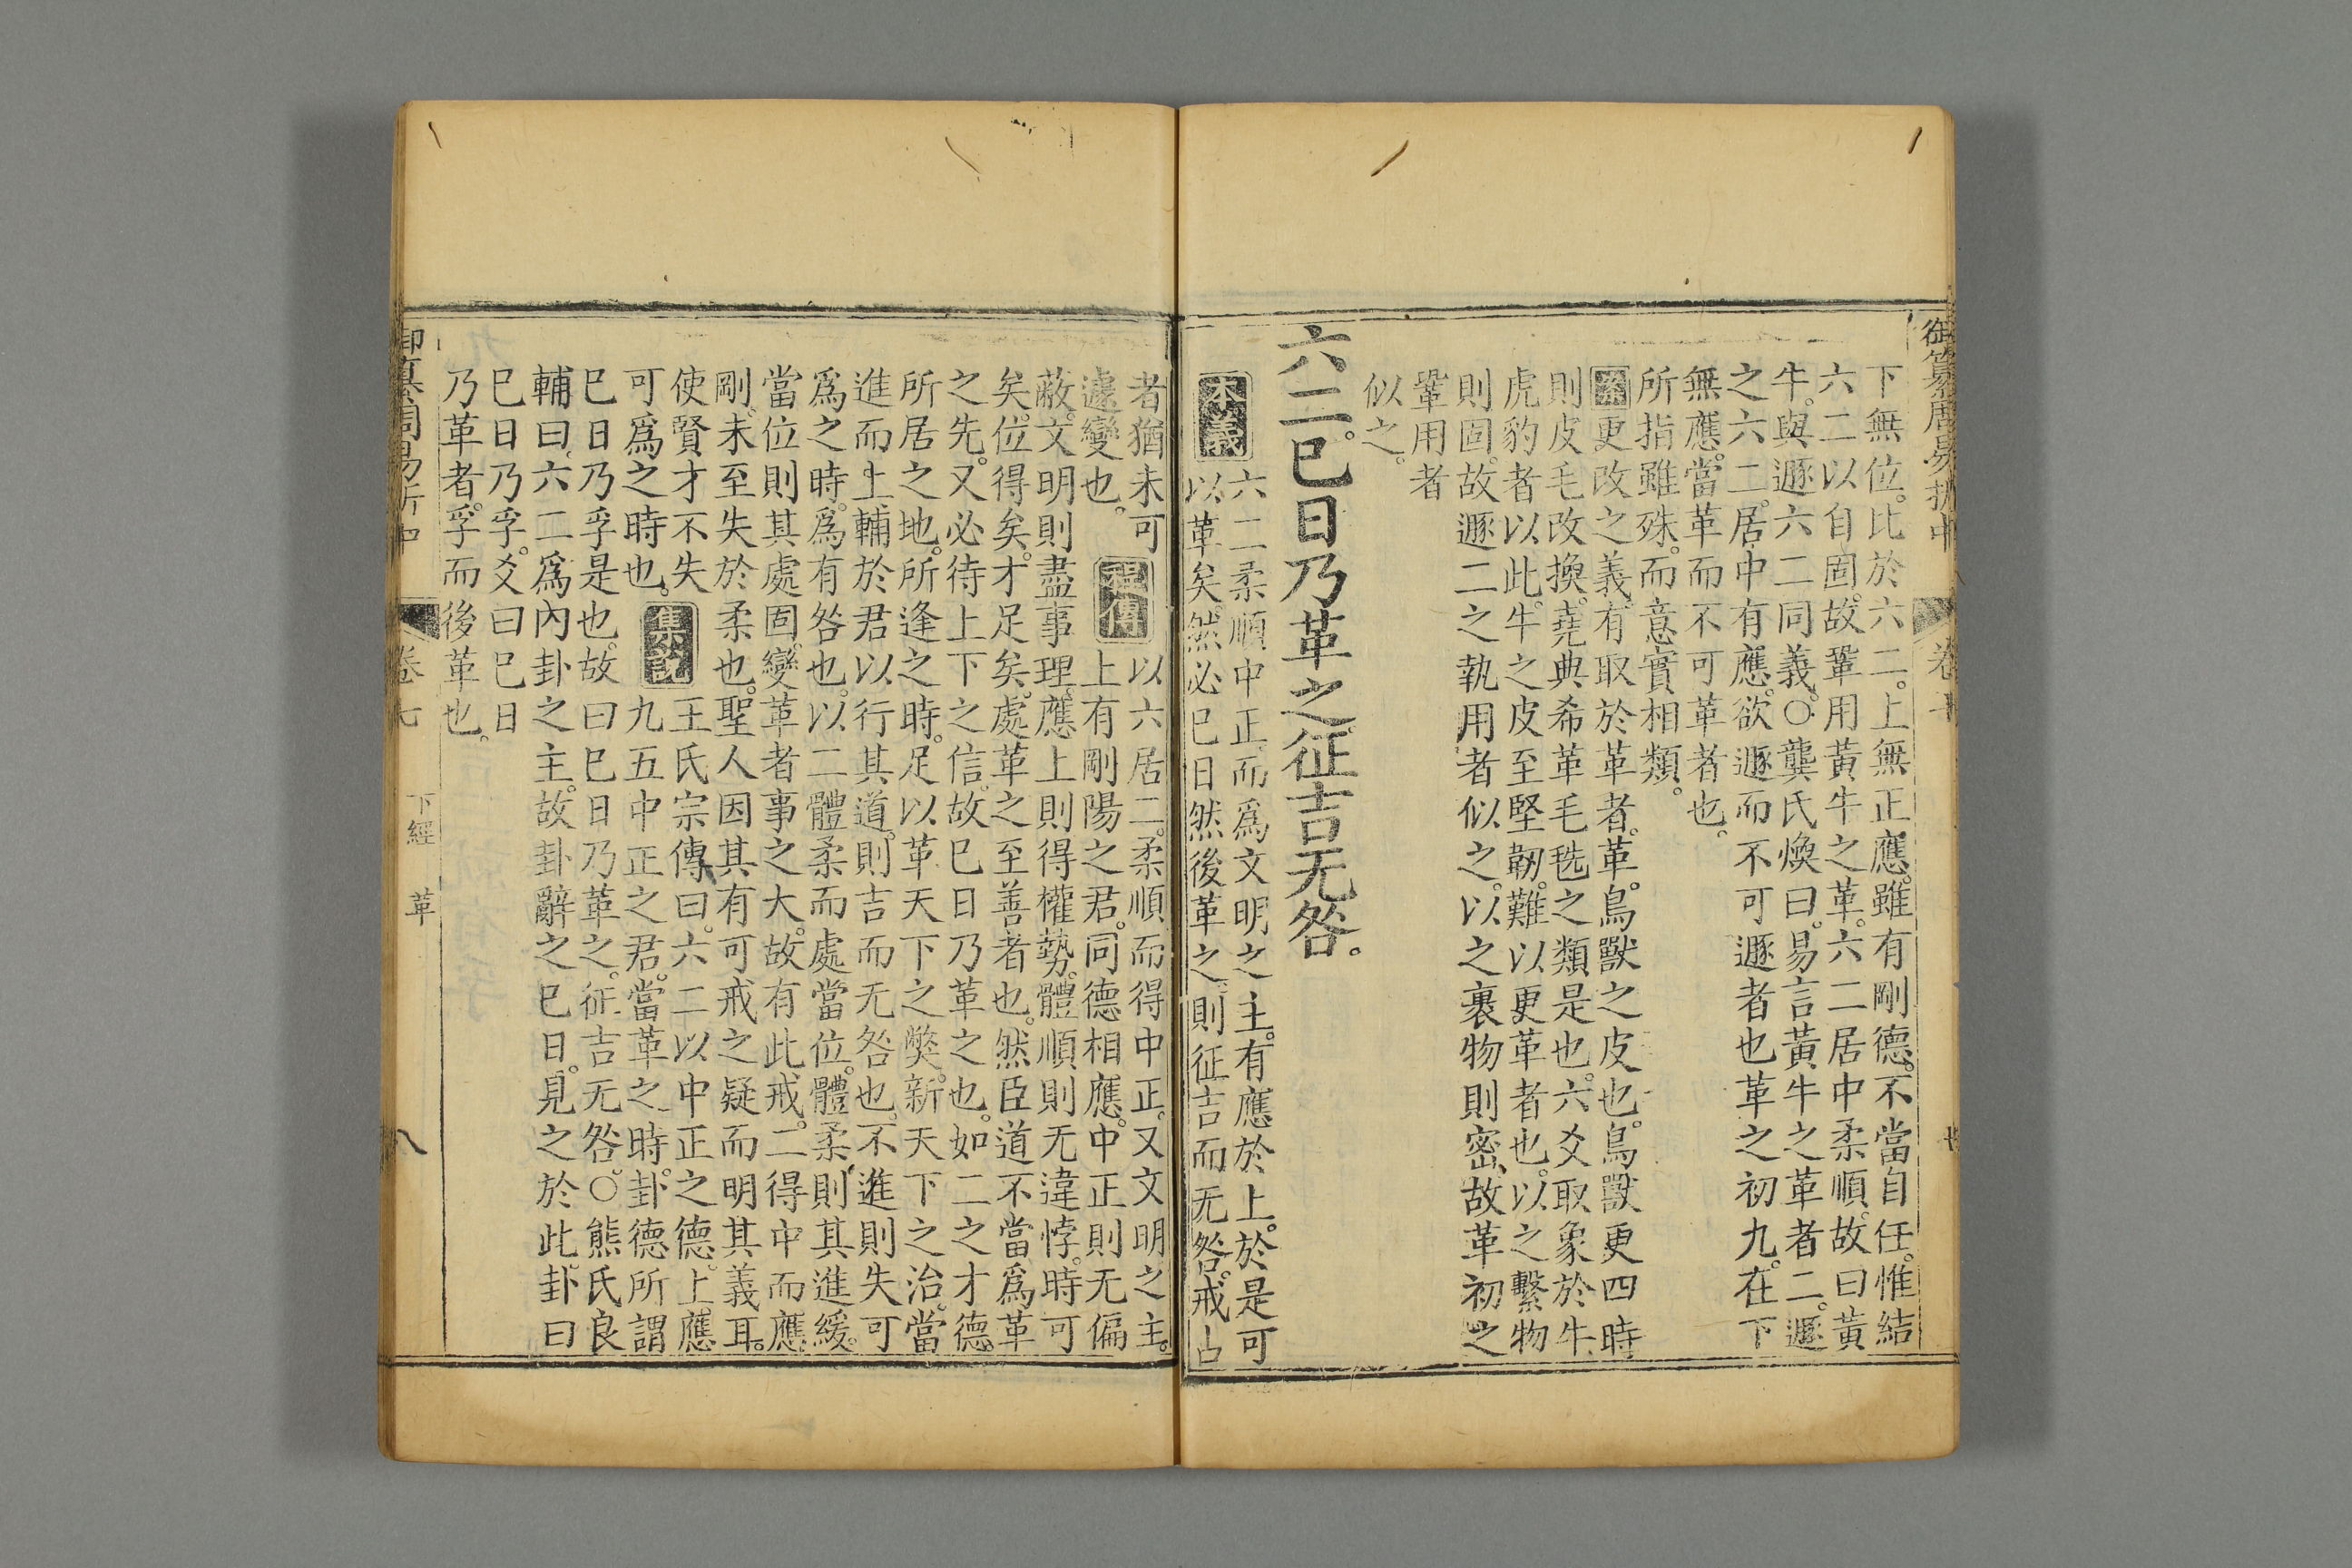 御纂周易折中
卷七
下無位。比於六二。上無正應。雖有剛德。不當自任。惟結
六二以自固。故鞏用黃牛之革。六二居中柔順。故曰黃
牛。與遯六二同義。○龔氏煥曰。易言黃牛之革者二。遯
之六二。居中有應。欲遯而不可遯者也革之初九。在下
無應。當革而不可革者也。
所指雖殊。而意實相類。
案更改之義。有取於革者。革。鳥獸之皮也。鳥獸更四時
則皮毛改換。堯典希革毛毨之類是也。六爻取象於牛
虎豹者以此。牛之皮至堅韌。難以更革者也。以之繫物
則固。故遯二之執用者似之。以之裹物則密。故革初之
鞏用者
似之。
六二。巳日乃革之。征吉无咎。
本義
六二柔順中正。而爲文明之主。有應於上。於是可
以革矣。然必巳日然後革之。則征吉而无咎。戒占
者猶未可
遽變也。
程傳
以六居二。柔順而得中正。又文明之主。
上有剛陽之君。同德相應。中正則无偏
蔽。文明則盡事理。應上則得權勢。體順則无違悖。時可
矣。位得矣。才足矣。處革之至善者也。然臣道不當爲革
之先。又必待上下之信。故巳日乃革之也。如二之才德。
所居之地。所逢之時。足以革天下之弊。新天下之治。當
進而上輔於君。以行其道。則吉而无咎也。不進則失可
爲之時。爲有咎也。以二體柔而處當位。體柔則其進緩。
當位則其處固。變革者事之大。故有此戒。二得中而應
剛。未至失於柔也。聖人因其有可戒之疑而明其義耳。
使賢才不失
可爲之時也。
集說
王氏宗傳曰。六二以中正之德。上應
九五中正之君。當革之時。卦德所謂
巳日乃孚是也。故曰巳日乃革之。征吉无咎。○熊氏良
輔曰。六二爲內卦之主。故卦辭之巳日。見之於此。卦曰
巳日乃孚。爻曰巳日
乃革者。孚而後革也。
御纂周易折中
卷七
下經
革
八